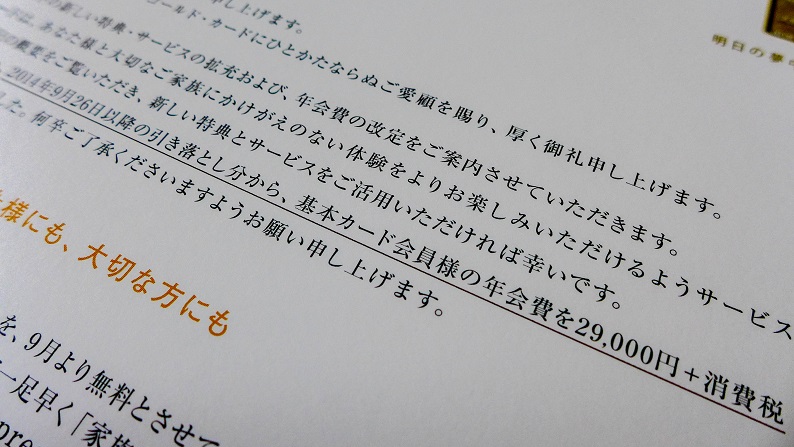 申し上げます。
ゴールド・カードにひとかたならぬご愛顧を賜り、厚く御礼申し上げます。
の新しい特典・サービスの拡充および、年会費の改定をご案内させていただきます。
あなた様と大切なご家族にかけがえのない体験をよりお楽しみいただけるようサービス
概要をご覧いただき、新しい特典とサービスをご活用いただければ幸いです。
2014年9月26日以降の引き落とし分から、基本カード会員様の年会費を29,000円+消費税
した。何卒ご了承くださいますようお願い申し上げます。
様にも、大切な方にも
を、9月より無料とさせて
一足早く「家族
pre
明日の夢